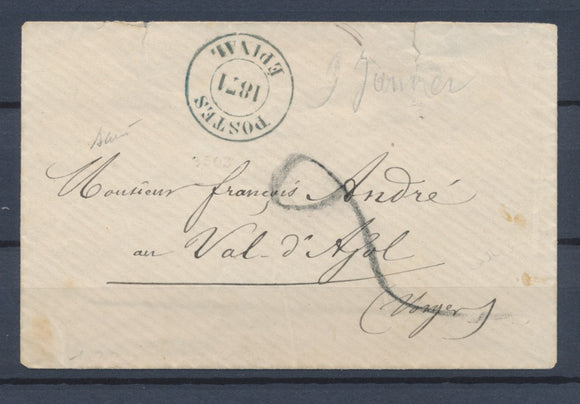 POSTES
1871
EPINAL
9 Janvier
3503
Monsieur françois André
au Val-d'Ajol
(Vosges)